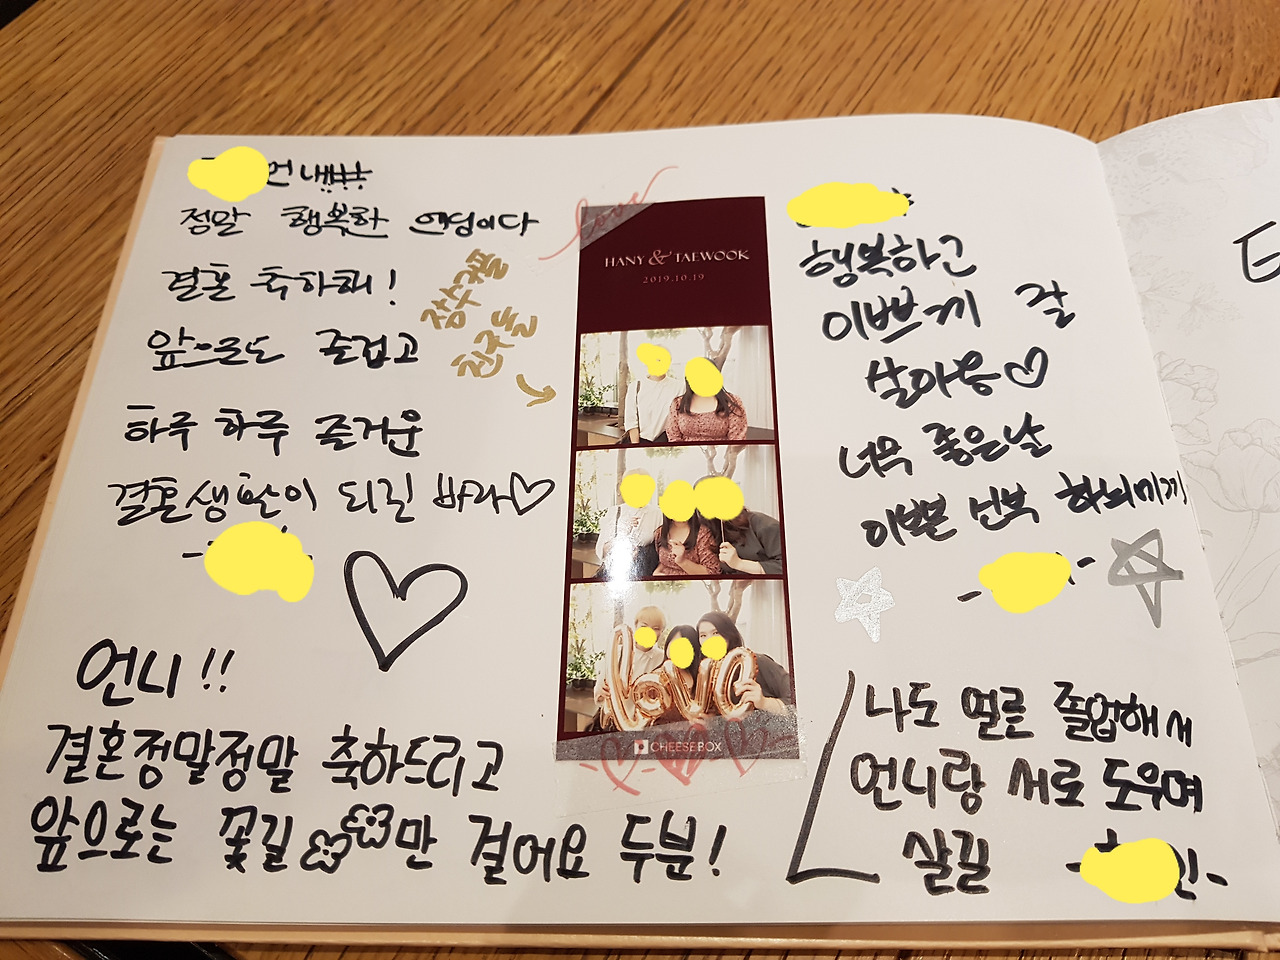 정말 행복한 엔딩이다
결혼 축하해!
앞으로도 즐겁고
하루 하루 즐거운
결혼생활이 되길 바라♡
잠수궤뚤
친구들
love
HANY & TAEWOOK
2019.10.19
love
CHEESEBOX
행복하고
이쁘게 잘
살아용♡
너무 좋은날
이쁜
언니!!
결혼정말정말 축하드리고
앞으로는 꽃길만 걸어요 두분!
나도 얼른 졸업해서
언니랑 서로 도우며
살길